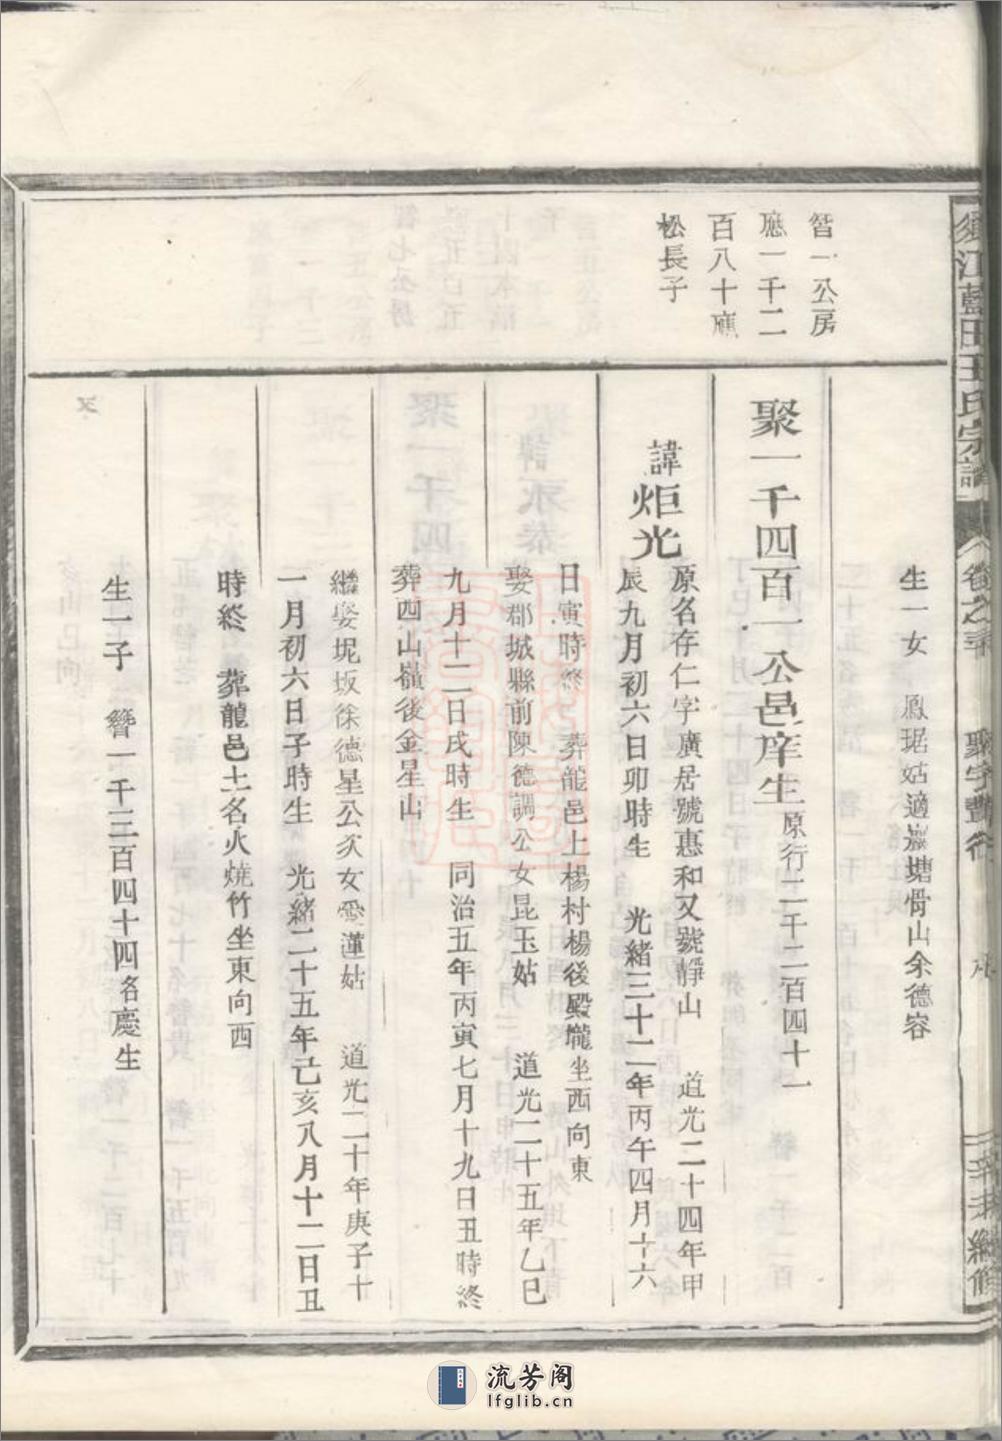 須江藍田王氏宗譜
卷之
聚字
辛未繼修
生一女 鳳琚姑適嚴塘骨山余德容
智一公房
應一千二
百八十應
松長子
聚一千四百一公邑庠生原行二千二百四十一
諱炬光
原名存仁字廣居號惠和又號靜山 道光二十四年甲
辰九月初六日卯時生 光緒三十二年丙午四月十六
日寅時終 葬龍邑上楊村楊後殿壠坐西向東
娶郡城縣前陳德調公女昆玉姑 道光二十五年乙巳
九月十二日戌時生 同治五年丙寅七月十九日丑時終
葬西山嶺後金星山
繼娶坭坂徐德星公次女愛蓮姑 道光二十年庚子十
一月初六日子時生 光緒二十五年己亥八月十二日丑
時終 葬龍邑土名火燒竹坐東向西
生一子 簪一千三百四十四名慶生
流芳阁
lfglib.cn